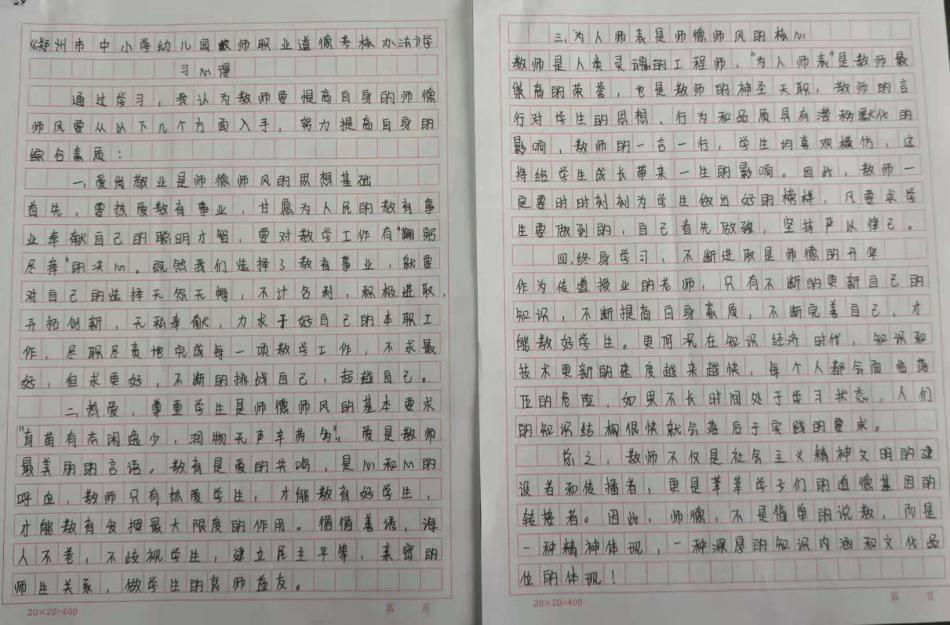 《郑州市中小学幼儿园教师职业道德考核办法》学
习心得
通过学习，我认为教师要提高自身的师德
师风要从以下几个方面入手，努力提高自身的
综合素质：
一、爱岗敬业是师德师风的思想基础
首先，要热爱教育事业，甘愿为人民的教育事
业奉献自己的聪明才智，要对教学工作有"鞠躬
尽瘁"的决心。既然我们选择了教育事业，就要
对自己的选择无怨无悔，不计名利，积极进取，
开拓创新，无私奉献，力求干好自己的本职工
作，尽职尽责地完成每一项教学工作，不求最
好，但求更好，不断的挑战自己，超越自己。
二、热爱，尊重学生是师德师风的基本要求
"育苗有志闲逸少，润物无声辛劳多"。爱是教师
最美丽的言语。教育是爱的共鸣，是心和心的
呼应，教师只有热爱学生，才能教育好学生，
才能教育发挥最大限度的作用。循循善诱，诲
人不卷，不歧视学生，建立民主平等，亲密的
师生关系，做学生的良师益友。
20×20=400
第 页
三、为人师表是师德师风的核心
教师是人类灵魂的工程师，"为人师表"是教师最
崇高的荣誉，也是教师的神圣天职，教师的言
行对学生的思想、行为和品质具有潜移默化的
影响，教师的一言一行，学生均喜欢模仿，这
将给学生成长带来一生的影响。因此，教师一
定要时时刻刻为学生做出好的榜样，凡要求学
生要做到的，自己首先做到，坚持严以律己。
四、终身学习，不断进取是师德的升华
作为传道授业的老师，只有不断的更新自己的
知识，不断提高自身素质，不断完善自己，才
能教好学生。更何况在知识经济时代，知识和
技术更新的速度越来越快，每个人都会面临落
伍的危险，如果不长时间处于学习状态，人们
的知识结构很快就会落后于实践的要求。
总之，教师不仅是社会主义精神文明的建
设者和传播者，更是莘莘学子们的道德基因的
转接者。因此，师德，不是简单的说教，而是
一种精神体现，一种深厚的知识内涵和文化品
位的体现！
20×20=400
第 页